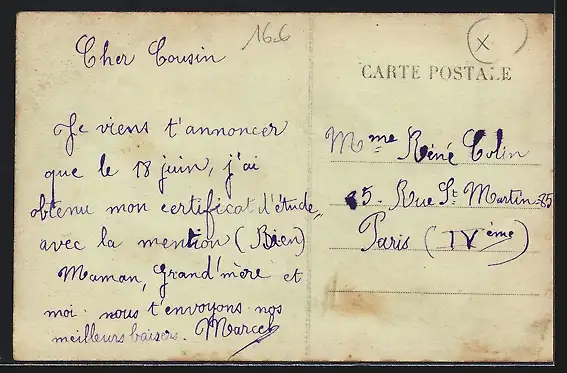 16.6
X
Cher Cousin
CARTE POSTALE
Je viens t'annoncer
que le 18 juin, j'ai
obtenu mon certificat d'étude,
avec la mention (Bien)
Maman, Grand'mère et
moi nous t'envoyons nos
meilleurs baisers. Marcel
Mme Réné Colin
85. Rue St Martin-85
Paris (IVème)